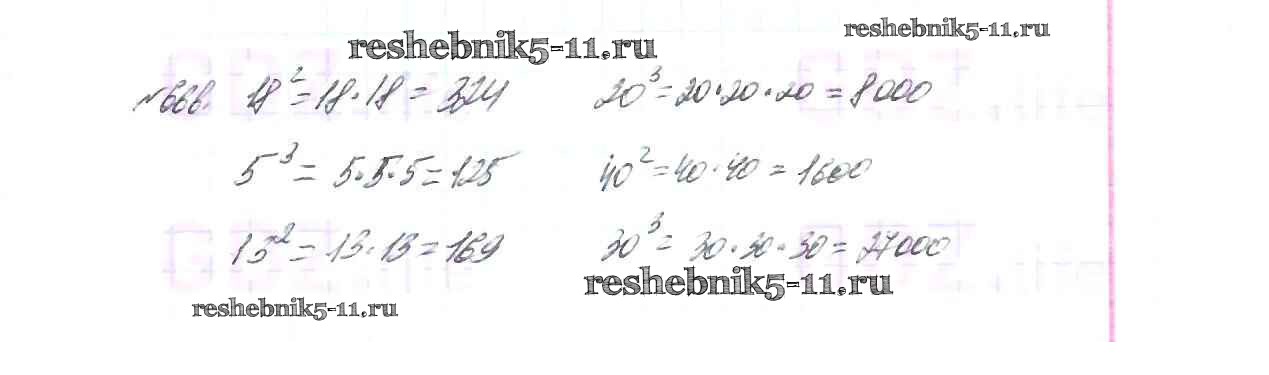 reshebnik5-11.ru
reshebnik5-11.ru
№666. 18² = 18·18 = 324 20³ = 20·20·20 = 8000
5³ = 5·5·5 = 125 40² = 40·40 = 1600
13² = 13·13 = 169 30³ = 30·30·30 = 27000
reshebnik5-11.ru
reshebnik5-11.ru